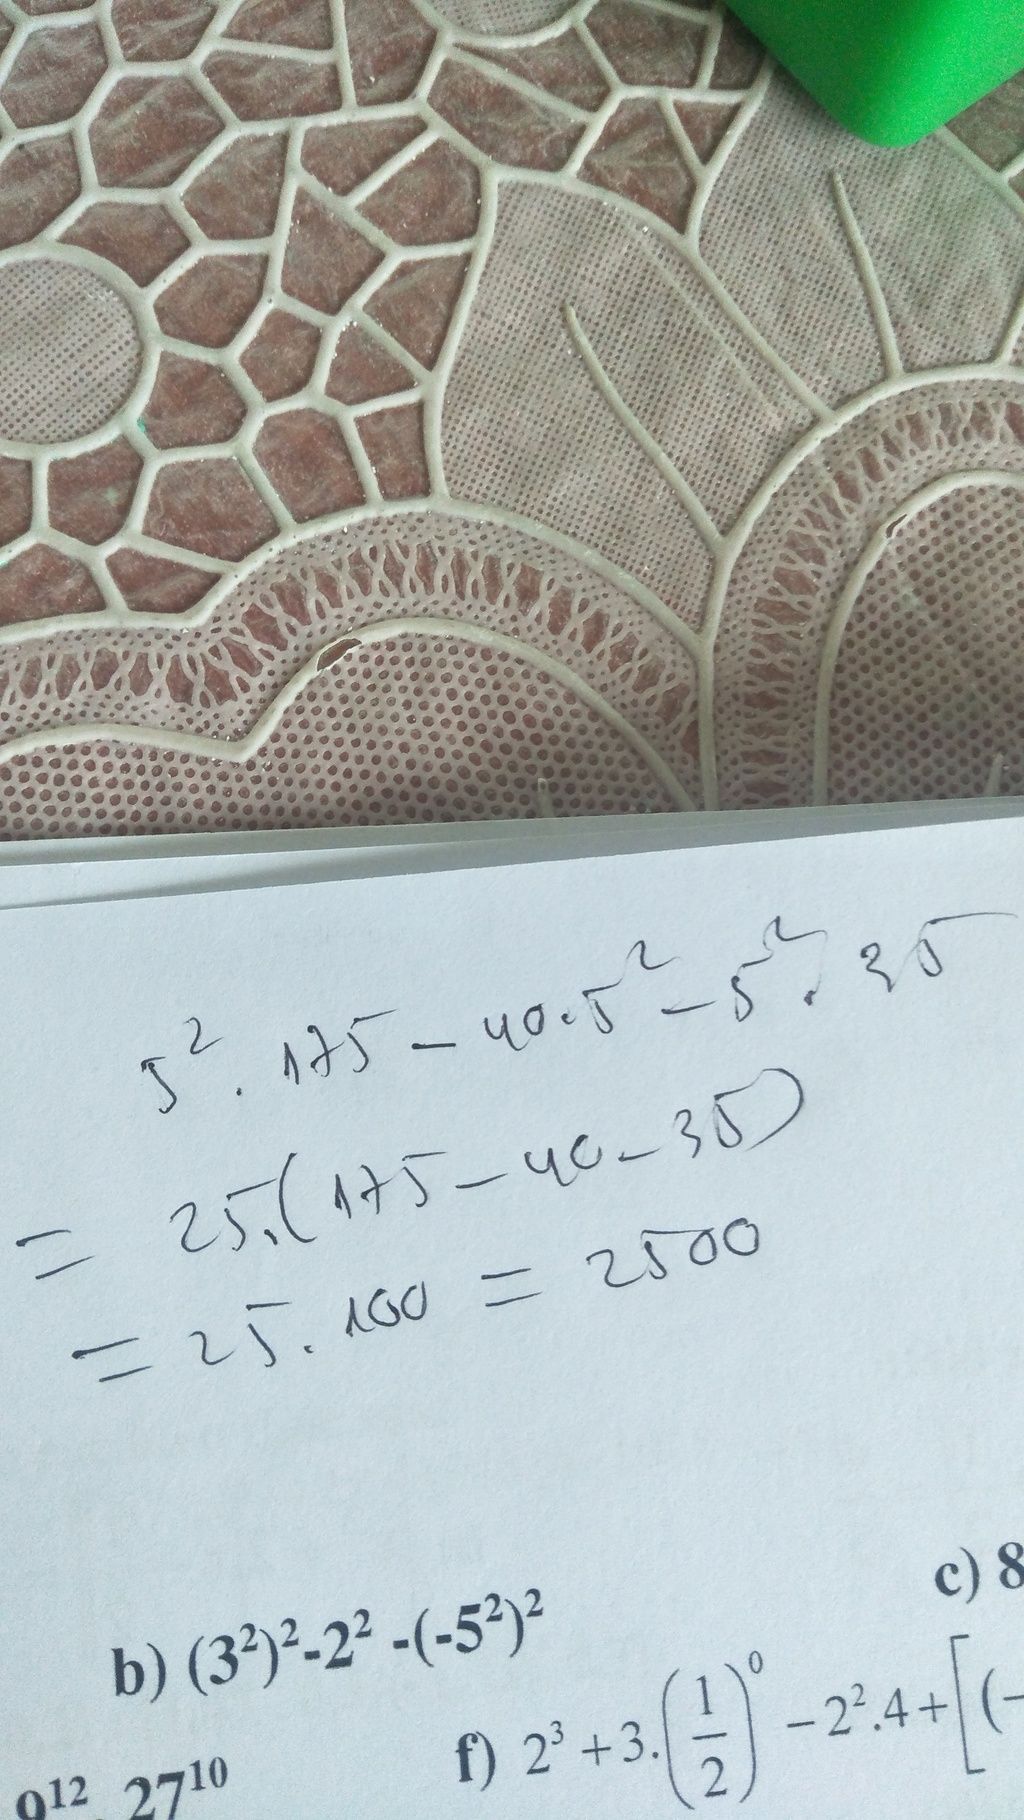 5² . 175 - 40.5² - 5² . 35
= 25.(175 - 40 - 35)
= 25 . 100 = 2500
c) 8
b) (3²)²-2² -(-5²)²
f) 2³ + 3.(1/2)⁰ - 2².4 + [(-
9¹² 27¹⁰